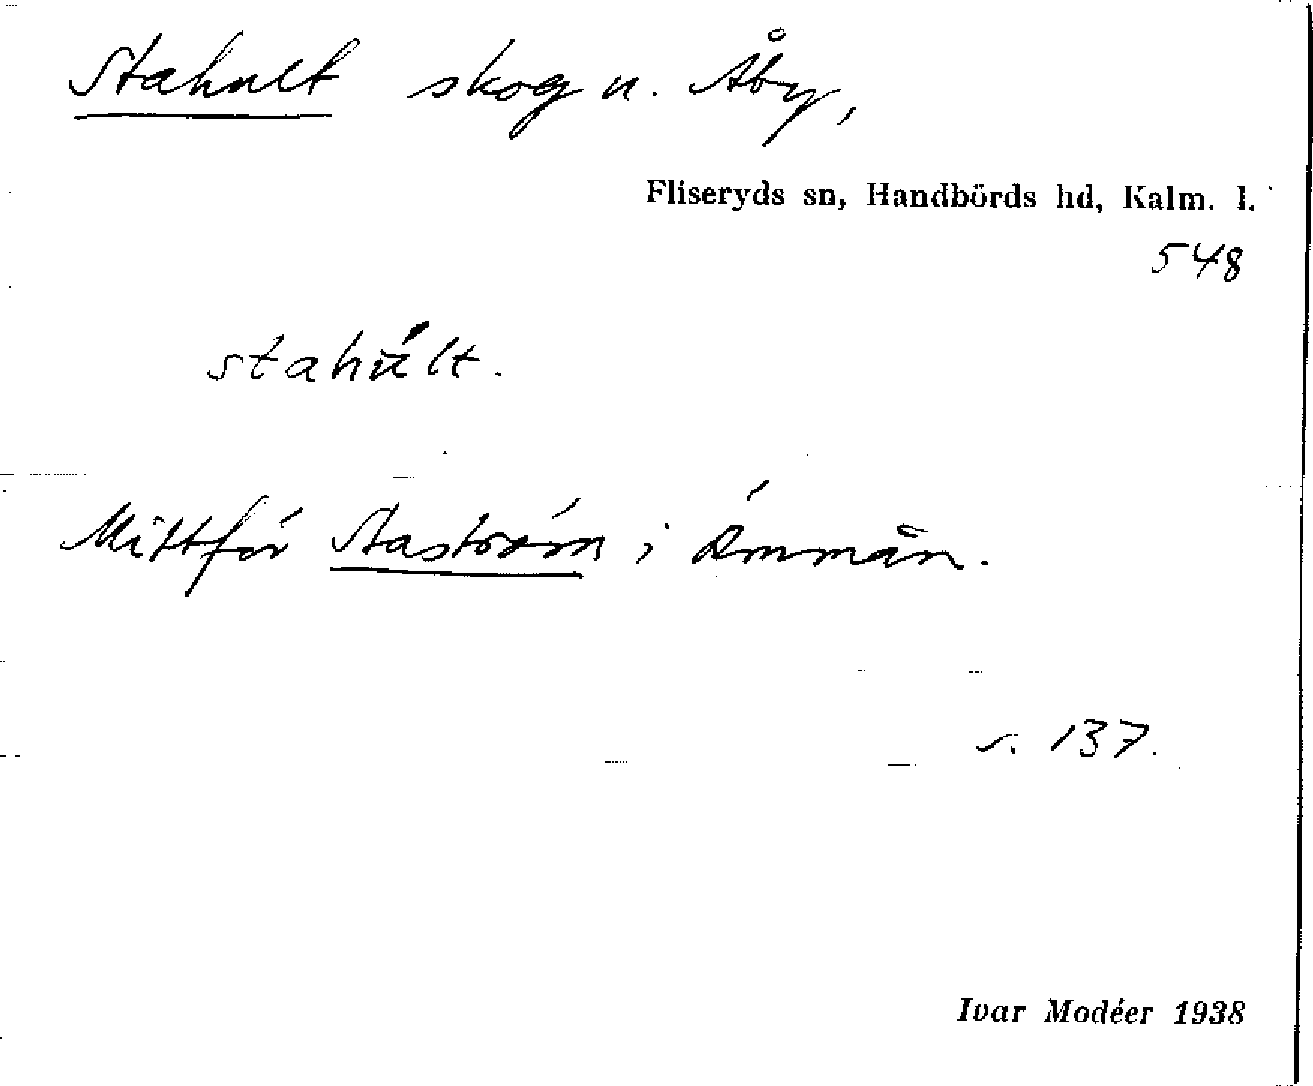 Stahult skog u. Åby,
Fliseryds sn, Handbörds hd, Kalm. l.
548
stahúlt.
Mittför Staström i Ömmån.
s. 137.
Ivar Modéer 1938